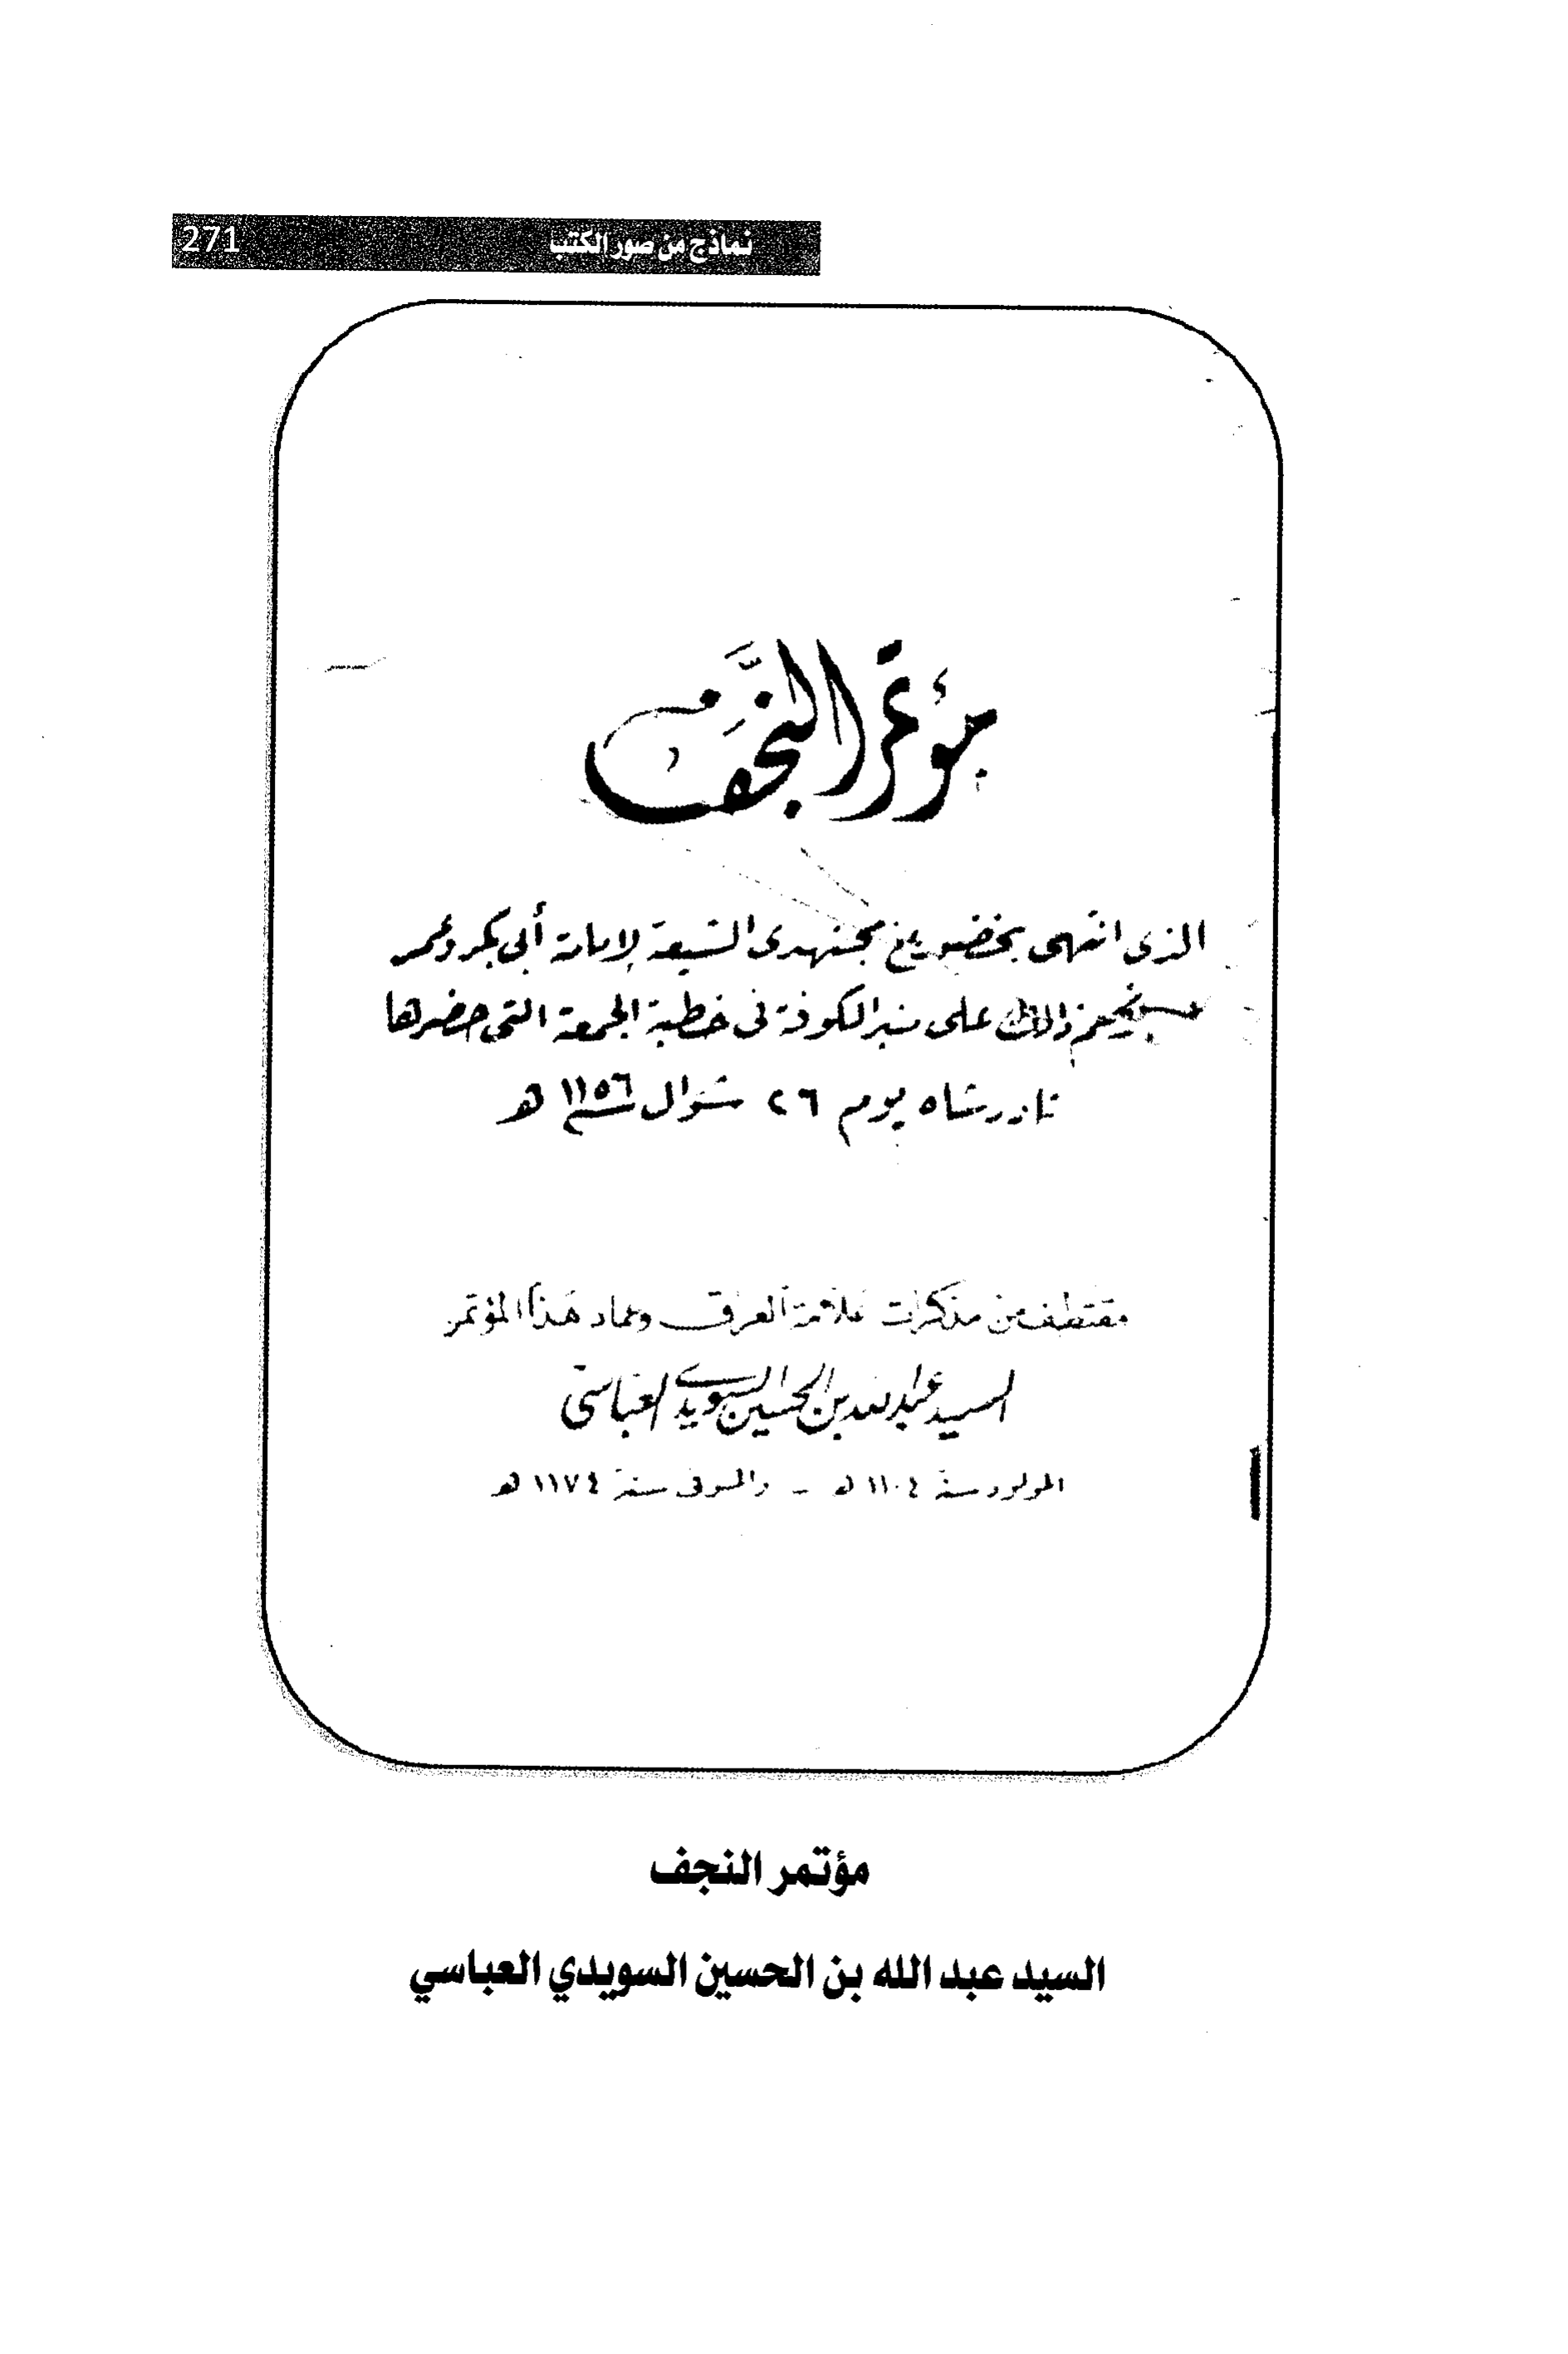 نماذج من صور الكتب 271
مؤتمر النجف
الذى انتهى بخضوع مجتهدى الشيعة لإمامة أبى بكر وعمر
على منبر الكوفة فى خطبة الجمعة التى حضرها
نادرشاه يوم ٢٦ شوال سنة ١١٥٦ هـ
مقتطف من مذكرات علامة العراق وعماد هذا المؤتمر
السيد عبد الله بن الحسين السويدى العباسى
المولود سنة ١١٠٤ هـ - والمتوفى سنة ١١٧٤ هـ
مؤتمر النجف
السيد عبد الله بن الحسين السويدي العباسي